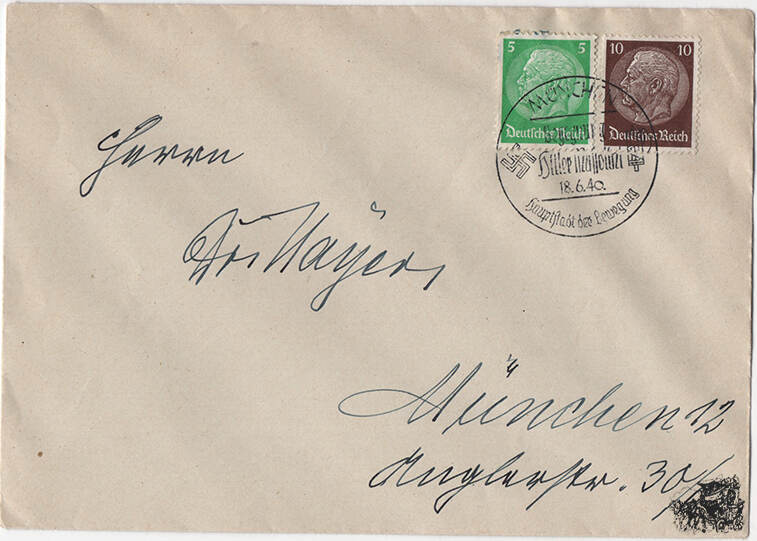 5 5
Deutsches Reich
10 10
Deutsches Reich
MÜNCHEN
Hitler Mussolini
18.6.40.
Hauptstadt der Bewegung
Herrn
Dr. Mayer,
München 12
Anglerstr. 30/